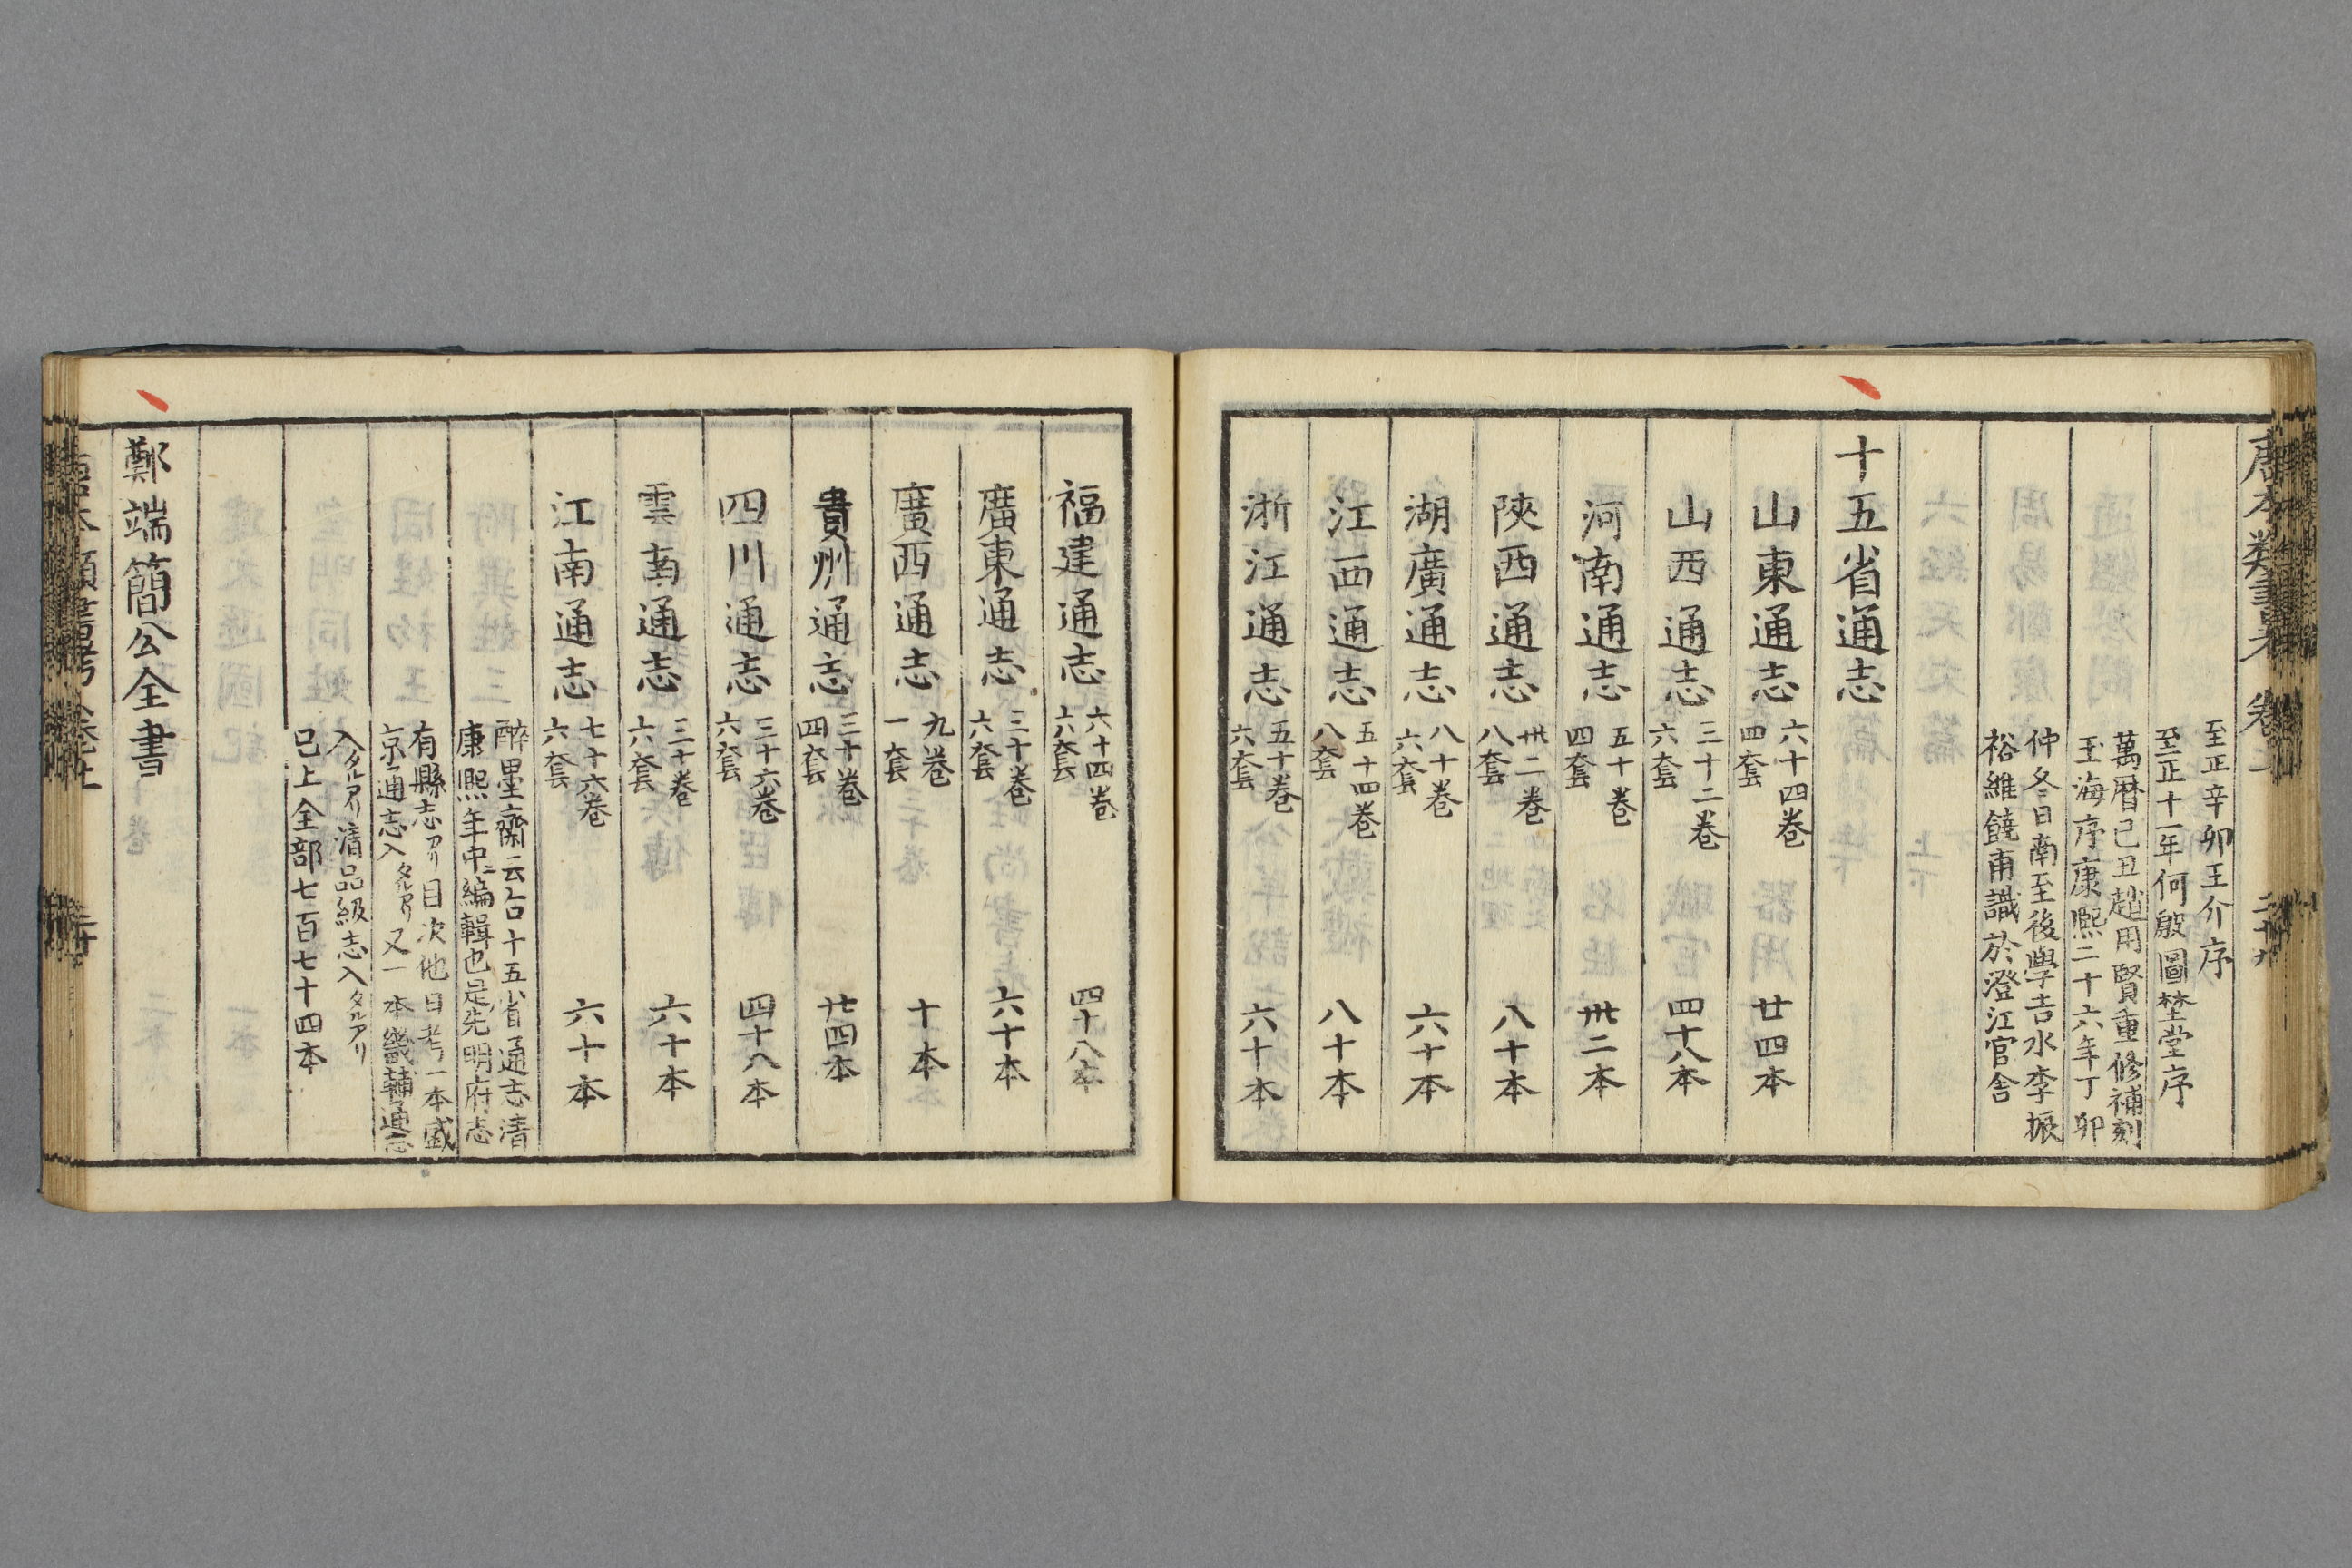 至正辛卯王介序
至正十一年何殷圖埜堂序
萬暦己丑趙用賢重修補刻
玉海序康熙二十六年丁卯
仲冬日南至後學吉水李振
裕維饒甫識於澄江官舎
十五省通志
山東通志 六十四巻 四套 廿四本
山西通志 三十二巻 六套 四十八本
河南通志 五十巻 四套 卅二本
陝西通志 卅二巻 八套 八十本
湖廣通志 八十巻 六套 六十本
江西通志 五十四巻 八套 八十本
浙江通志 五十巻 六套 六十本
福建通志 六十四巻 六套 四十八本
廣東通志 三十巻 六套 六十本
廣西通志 九巻 一套 十本
貴州通志 三十巻 四套 廿四本
四川通志 三十六巻 六套 四十八本
雲南通志 三十巻 六套 六十本
江南通志 七十六巻 六套 六十本
醉墨齋云右十五省通志清
康熙年中ニ編輯也是先明府志
有縣志アリ目次他日考一本盛
京通志入タルアリ又一本畿輔通志
入タルアリ清品級志入タルアリ
已上全部七百七十四本
鄭端簡公全書